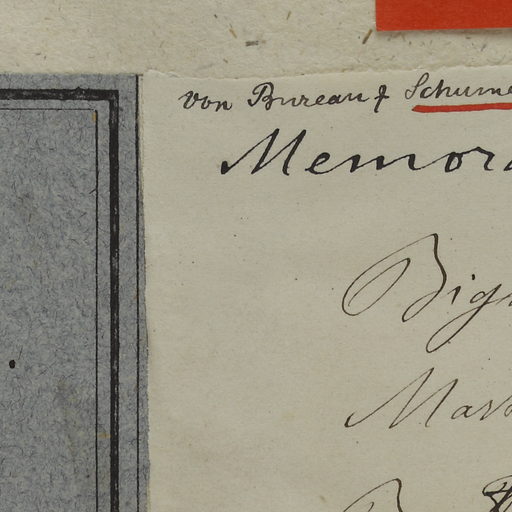 von Bureau f Schume
Memora
Big
Mars